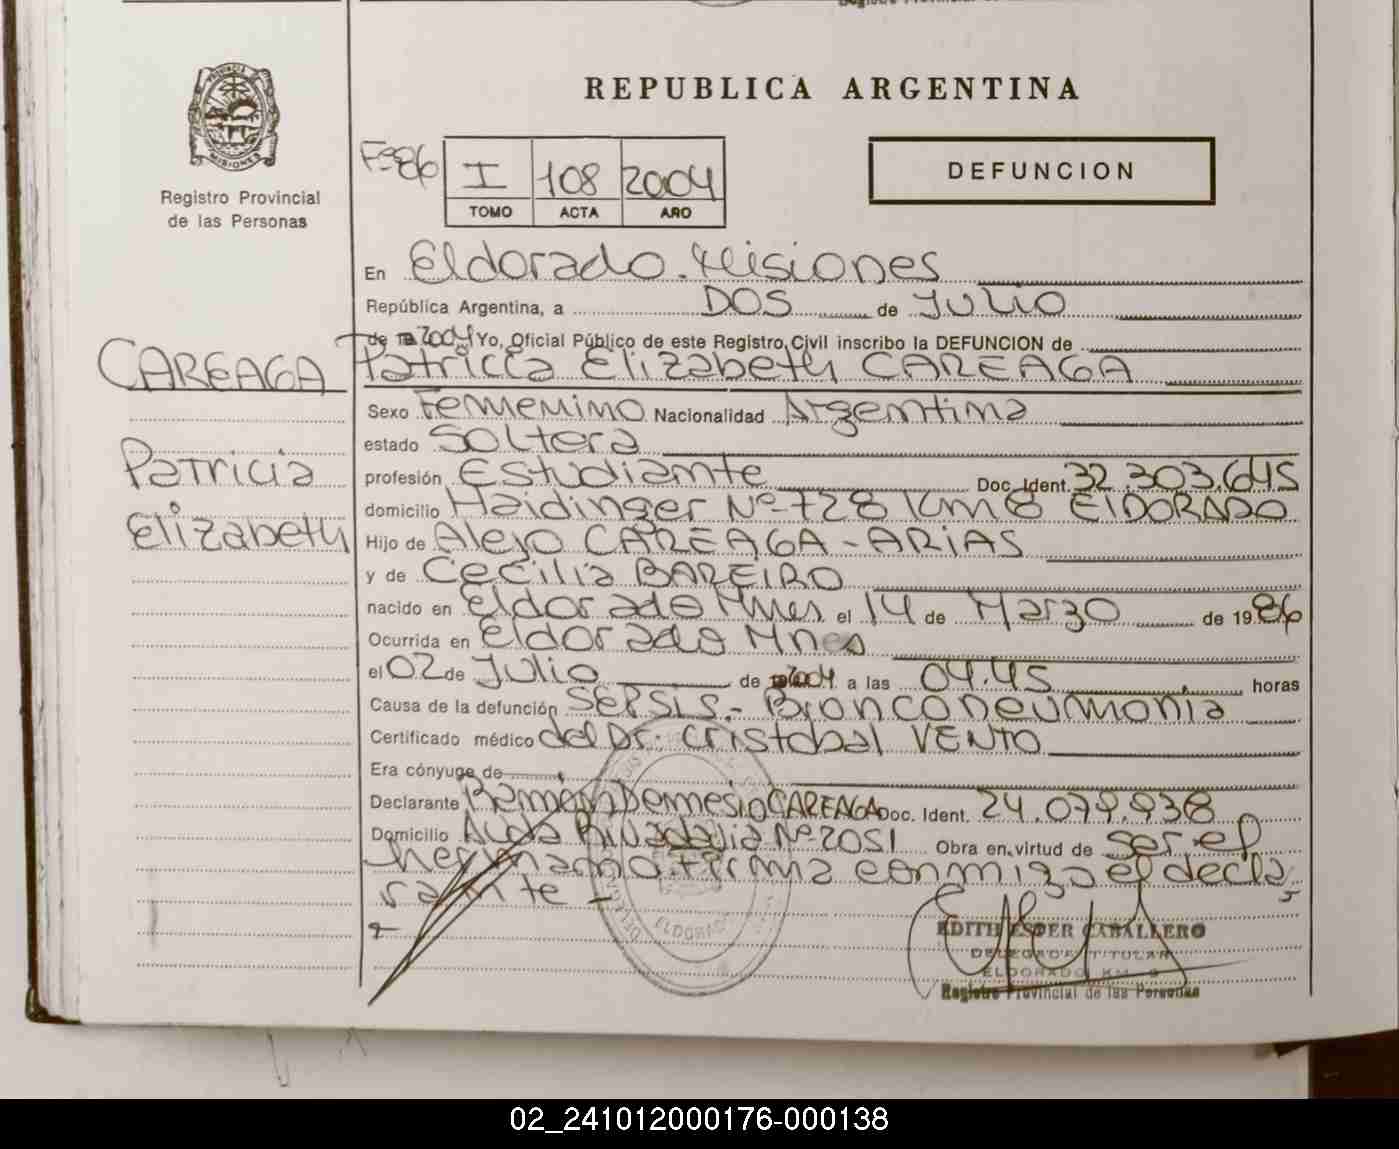 REPUBLICA ARGENTINA
PROVINCIA DE
MISIONES
Registro Provincial
de las Personas
I 108 2004
TOMO ACTA AÑO
DEFUNCION
En Eldorado. Misiones
República Argentina, a DOS de JULIO
de 2004 Yo, Oficial Público de este Registro Civil inscribo la DEFUNCION de
CAREAGA Patricia Elizabeth CAREAGA
Sexo Femenino Nacionalidad Argentina
estado Soltera
Patricia
profesión Estudiante Doc. Ident. 32.303.645
domicilio Haidinger Nº 728 Km 8 ElDORADO
Elizabeth
Hijo de Alejo CAREAGA - ARIAS
y de Cecilia BAREIRO
nacido en Eldorado Mnes el 14 de Marzo de 1986
Ocurrida en Eldorado Mnes
el 02 de Julio de 2004 a las 04.45 horas
Causa de la defunción SEPSIS.- Bronconeumonia
Certificado médico del Dr. Cristobal VENTO
Era cónyuge de
Declarante CAREAGA Doc. Ident. 24.079.938
Domicilio Avda Rivadavia Nº 2051 Obra en virtud de ser el
hermano. firma conmigo el decla
rante -
ELDORADO
EDITH ESDER CABALLERO
DELEGADA TITULAR
ELDORADO KM. 9
Registro Provincial de las Personas
02_241012000176-000138